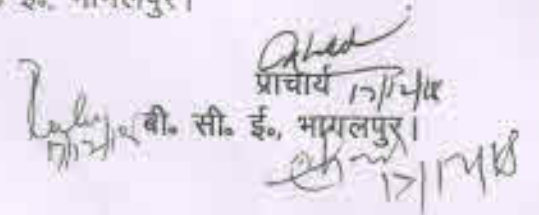 ई०, भागलपुर।
प्राचार्य 17/12/18
17/12/18 बी० सी० ई०, भागलपुर।
17/12/18